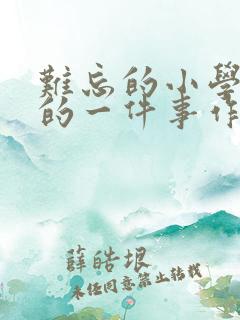 難忘的小學
的一件事作
薛皓垠
未任同意禁止轉載